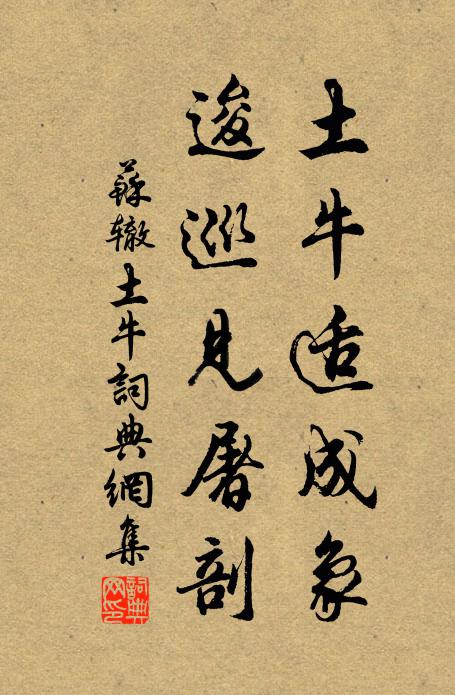 土牛适成象
逡巡見屠剖
蘇辙土牛詞典網集
詞典网印